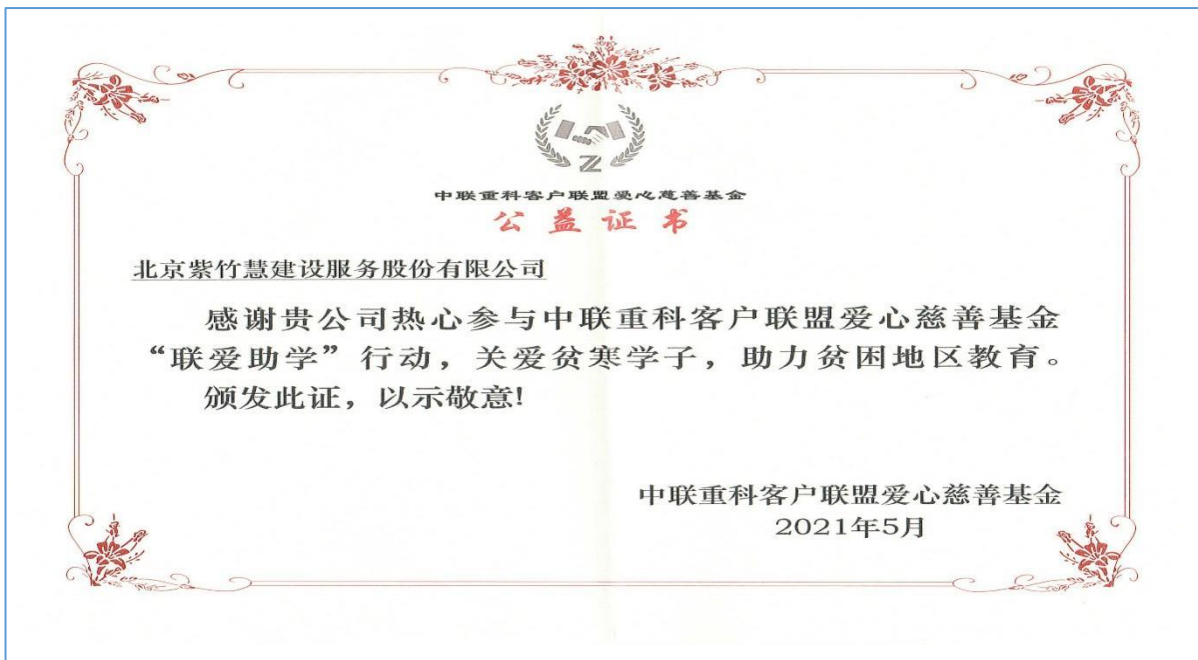 中联重科客户联盟爱心慈善基金
公益证书
北京紫竹慧建设服务股份有限公司
感谢贵公司热心参与中联重科客户联盟爱心慈善基金
“联爱助学”行动，关爱贫寒学子，助力贫困地区教育。
颁发此证，以示敬意!
中联重科客户联盟爱心慈善基金
2021年5月